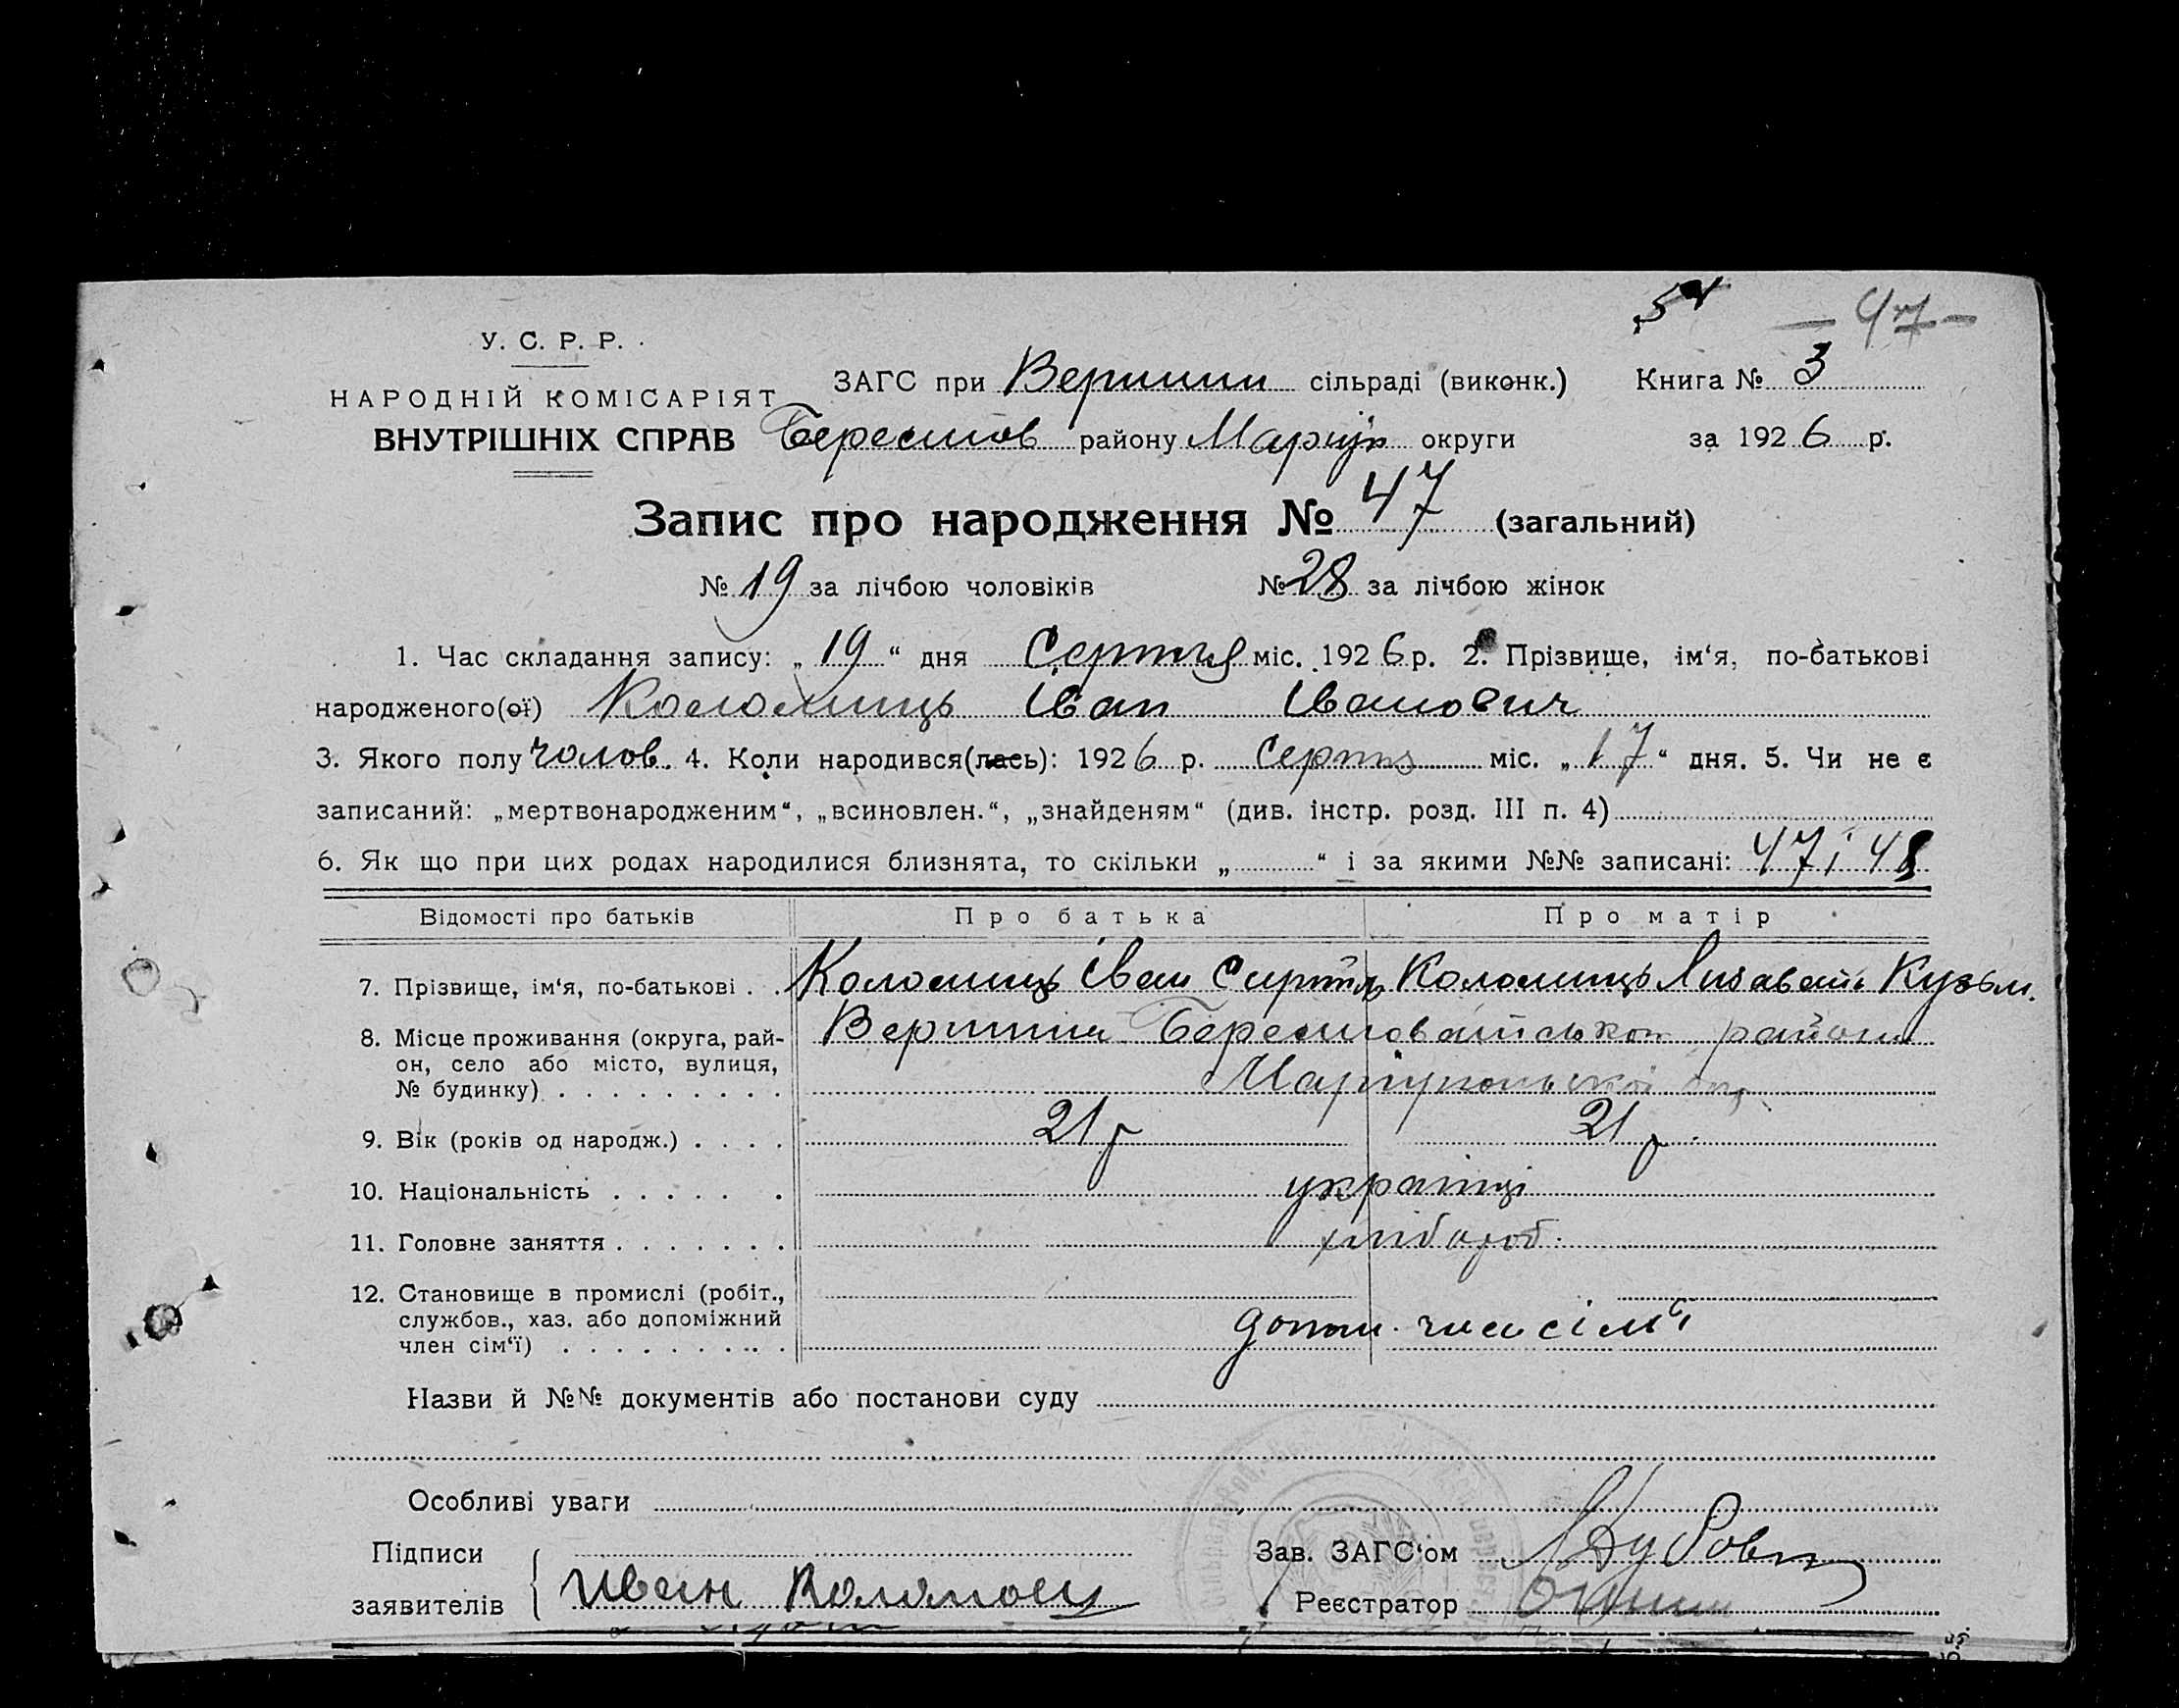 54 — 47 —
У. С. Р. Р.
НАРОДНІЙ КОМІСАРІЯТ
ВНУТРІШНІХ СПРАВ
ЗАГС при Вершини сільраді (виконк.) Книга № 3
Берестов району Маріуп округи за 1926 р.
Запис про народження № 47 (загальний)
№ 19 за лічбою чоловіків № 28 за лічбою жінок
1. Час складання запису: „ 19 “ дня Серпня міс. 1926 р. 2. Прізвище, ім‘я, по-батькові
народженого(ої) Коломиць Іван Іванович
3. Якого полу чолов. 4. Коли народився(лась): 1926 р. Серпня міс. „ 17 “ дня. 5. Чи не є
записаний: „мертвонародженим“, „всиновлен.“, „знайденям“ (див. інстр. розд. III п. 4)
6. Як що при цих родах народилися близнята, то скільки „ “ і за якими №№ записані: 47 і 48
Відомості про батьків Про батька Про матір
7. Прізвище, ім‘я, по-батькові . . Коломиць Іван Коломиць Лизавета Кузьм.
8. Місце проживання (округа, рай-
он, село або місто, вулиця,
№ будинку) . . . . . . . . .
Вершина району
Маріупольської окр
9. Вік (років од народж.) . . . . 21 р 21 р.
10. Національність . . . . . . українці
11. Головне заняття . . . . . . . хлібороб.
12. Становище в промислі (робіт.,
службов., хаз. або допоміжний
член сім‘ї) . . . . . . . . . .
допом. член сім'ї
Назви й №№ документів або постанови суду
Особливі уваги
Підписи
заявителів
Зав. ЗАГС‘ом
Иван
Реєстратор